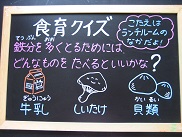 食育クイズ
こたえは
ランチルームの
なかだよ!
てつぶん おお
鉄分を多くとるためには
どんなものを たべるといいかな?
ぎゅうにゅう
牛乳
しいたけ
かいるい
貝類